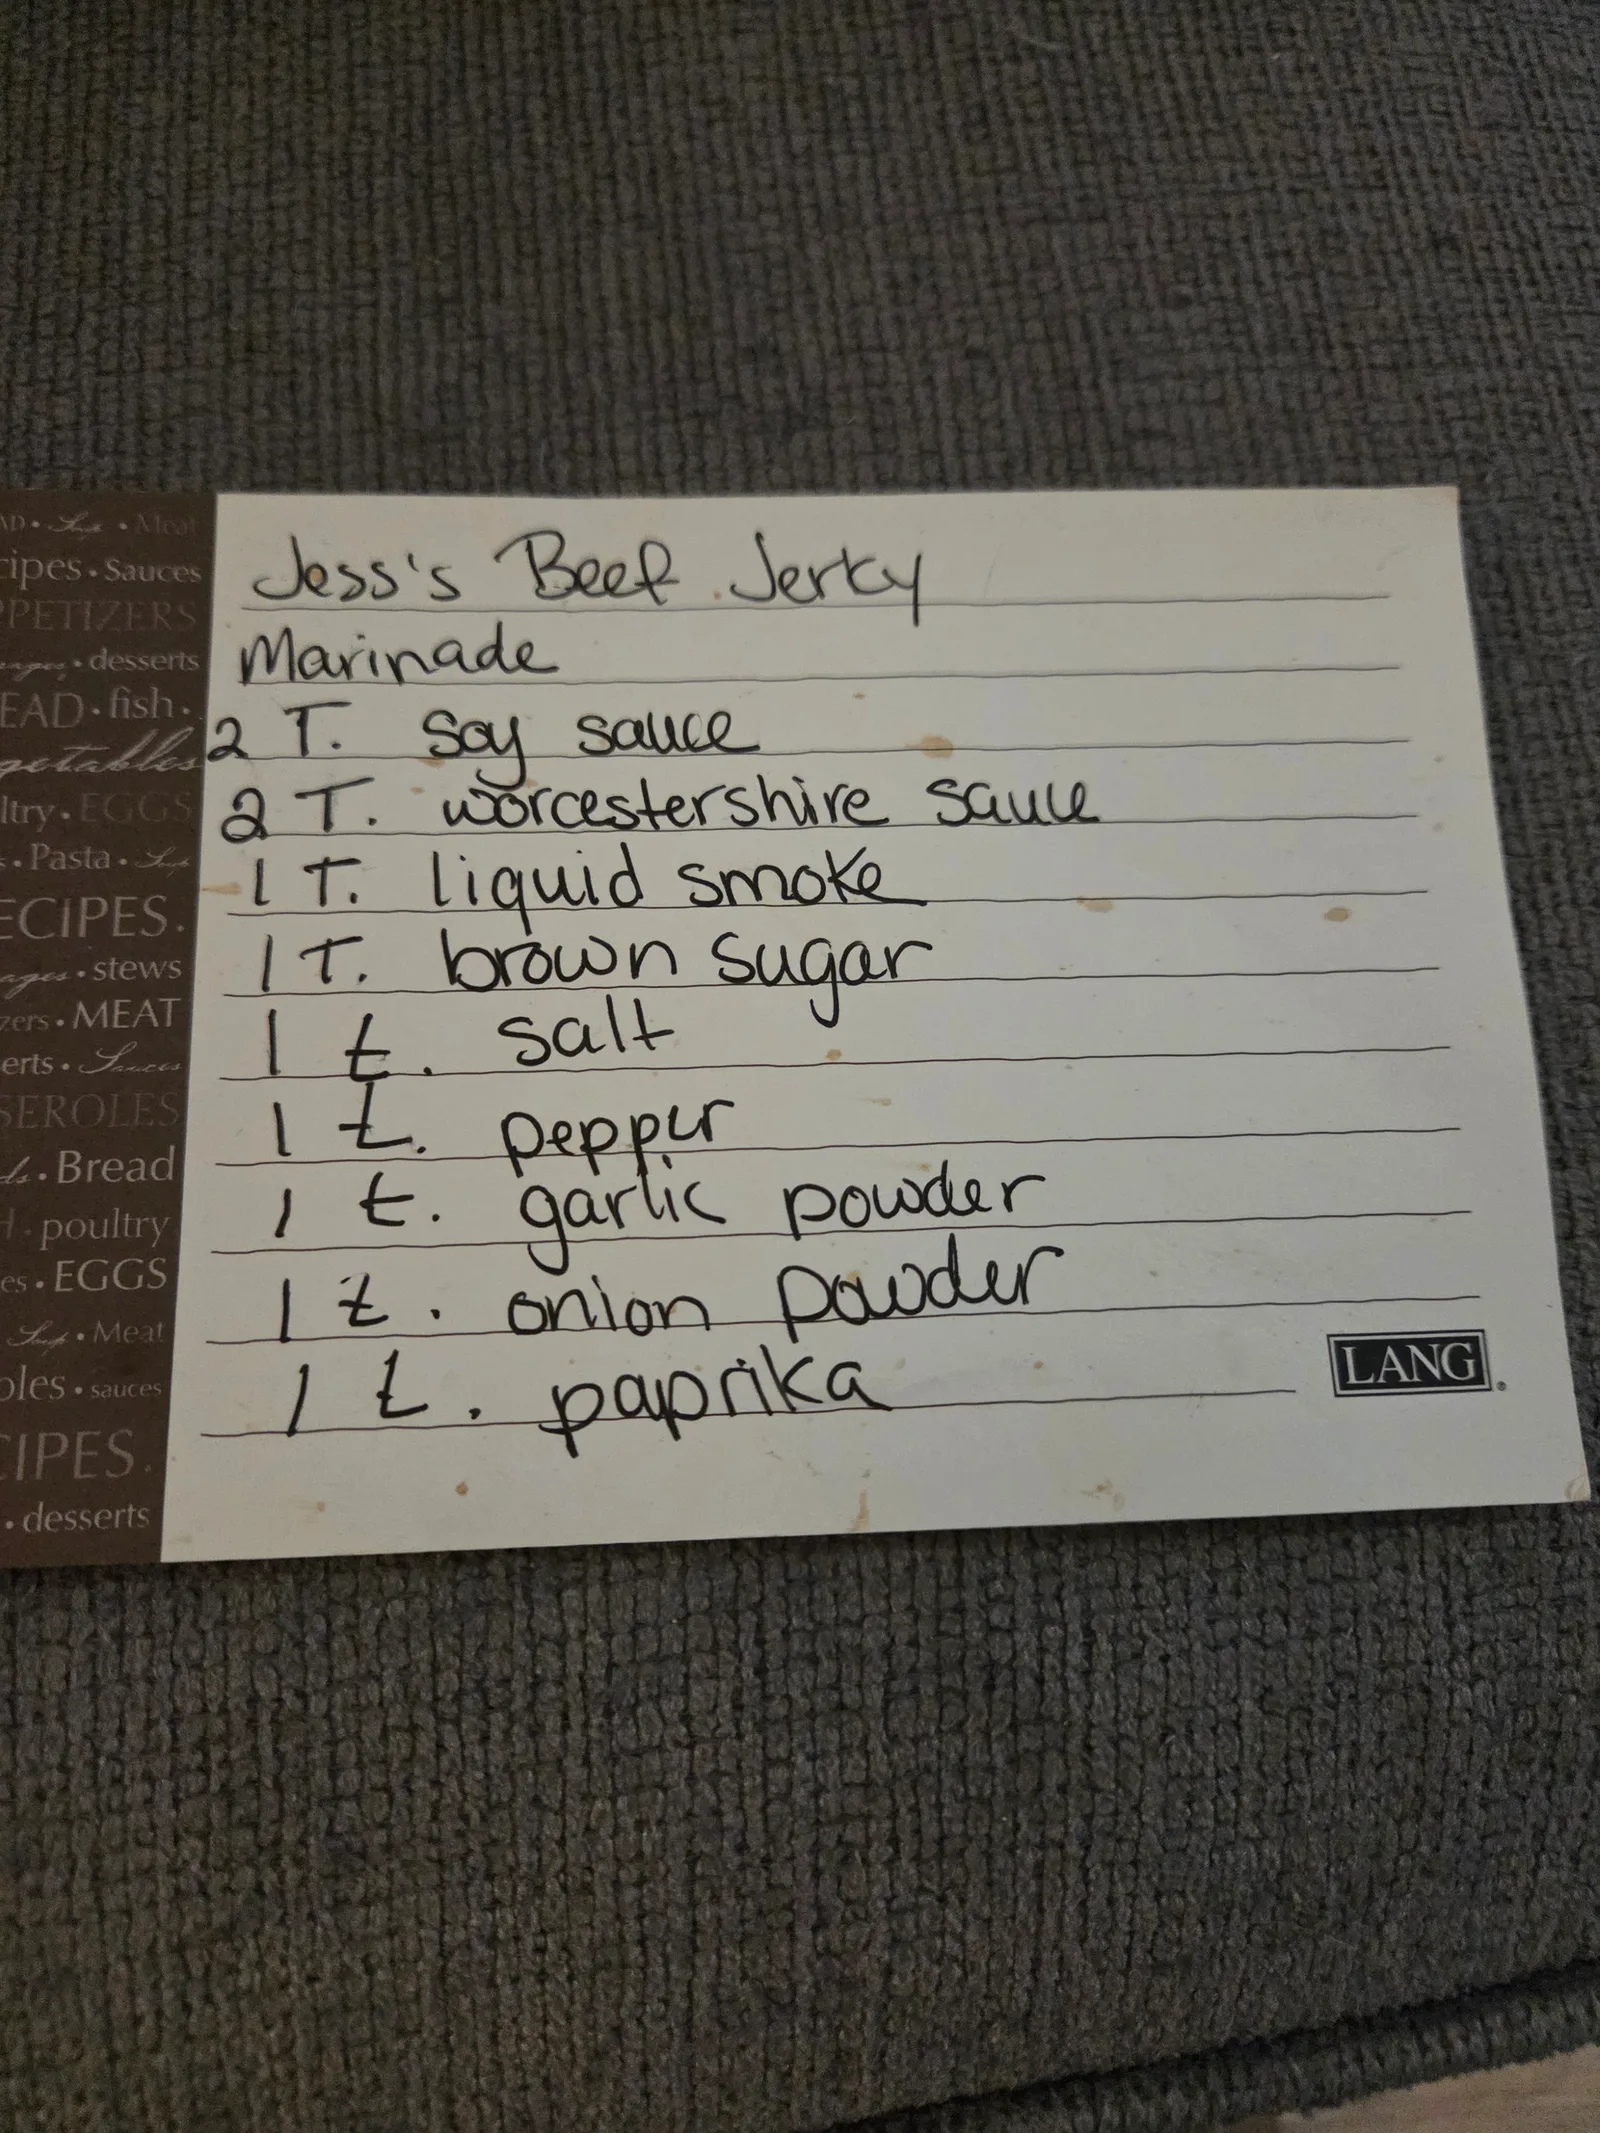 Jess's Beef Jerky
Marinade
2 T. soy sauce
2 T. worcestershire sauce
1 T. liquid smoke
1 T. brown sugar
1 t. salt
1 t. pepper
1 t. garlic powder
1 t. onion powder
1 t. paprika
LANG
• Meat
cipes • Sauces
PPETIZERS
• desserts
EAD • fish •
getables
ltry • EGGS
• Pasta •
ECIPES.
ages • stews
zers • MEAT
erts • Sauces
SEROLES
• Bread
• poultry
es • EGGS
• Meat
oles • sauces
CIPES.
• desserts